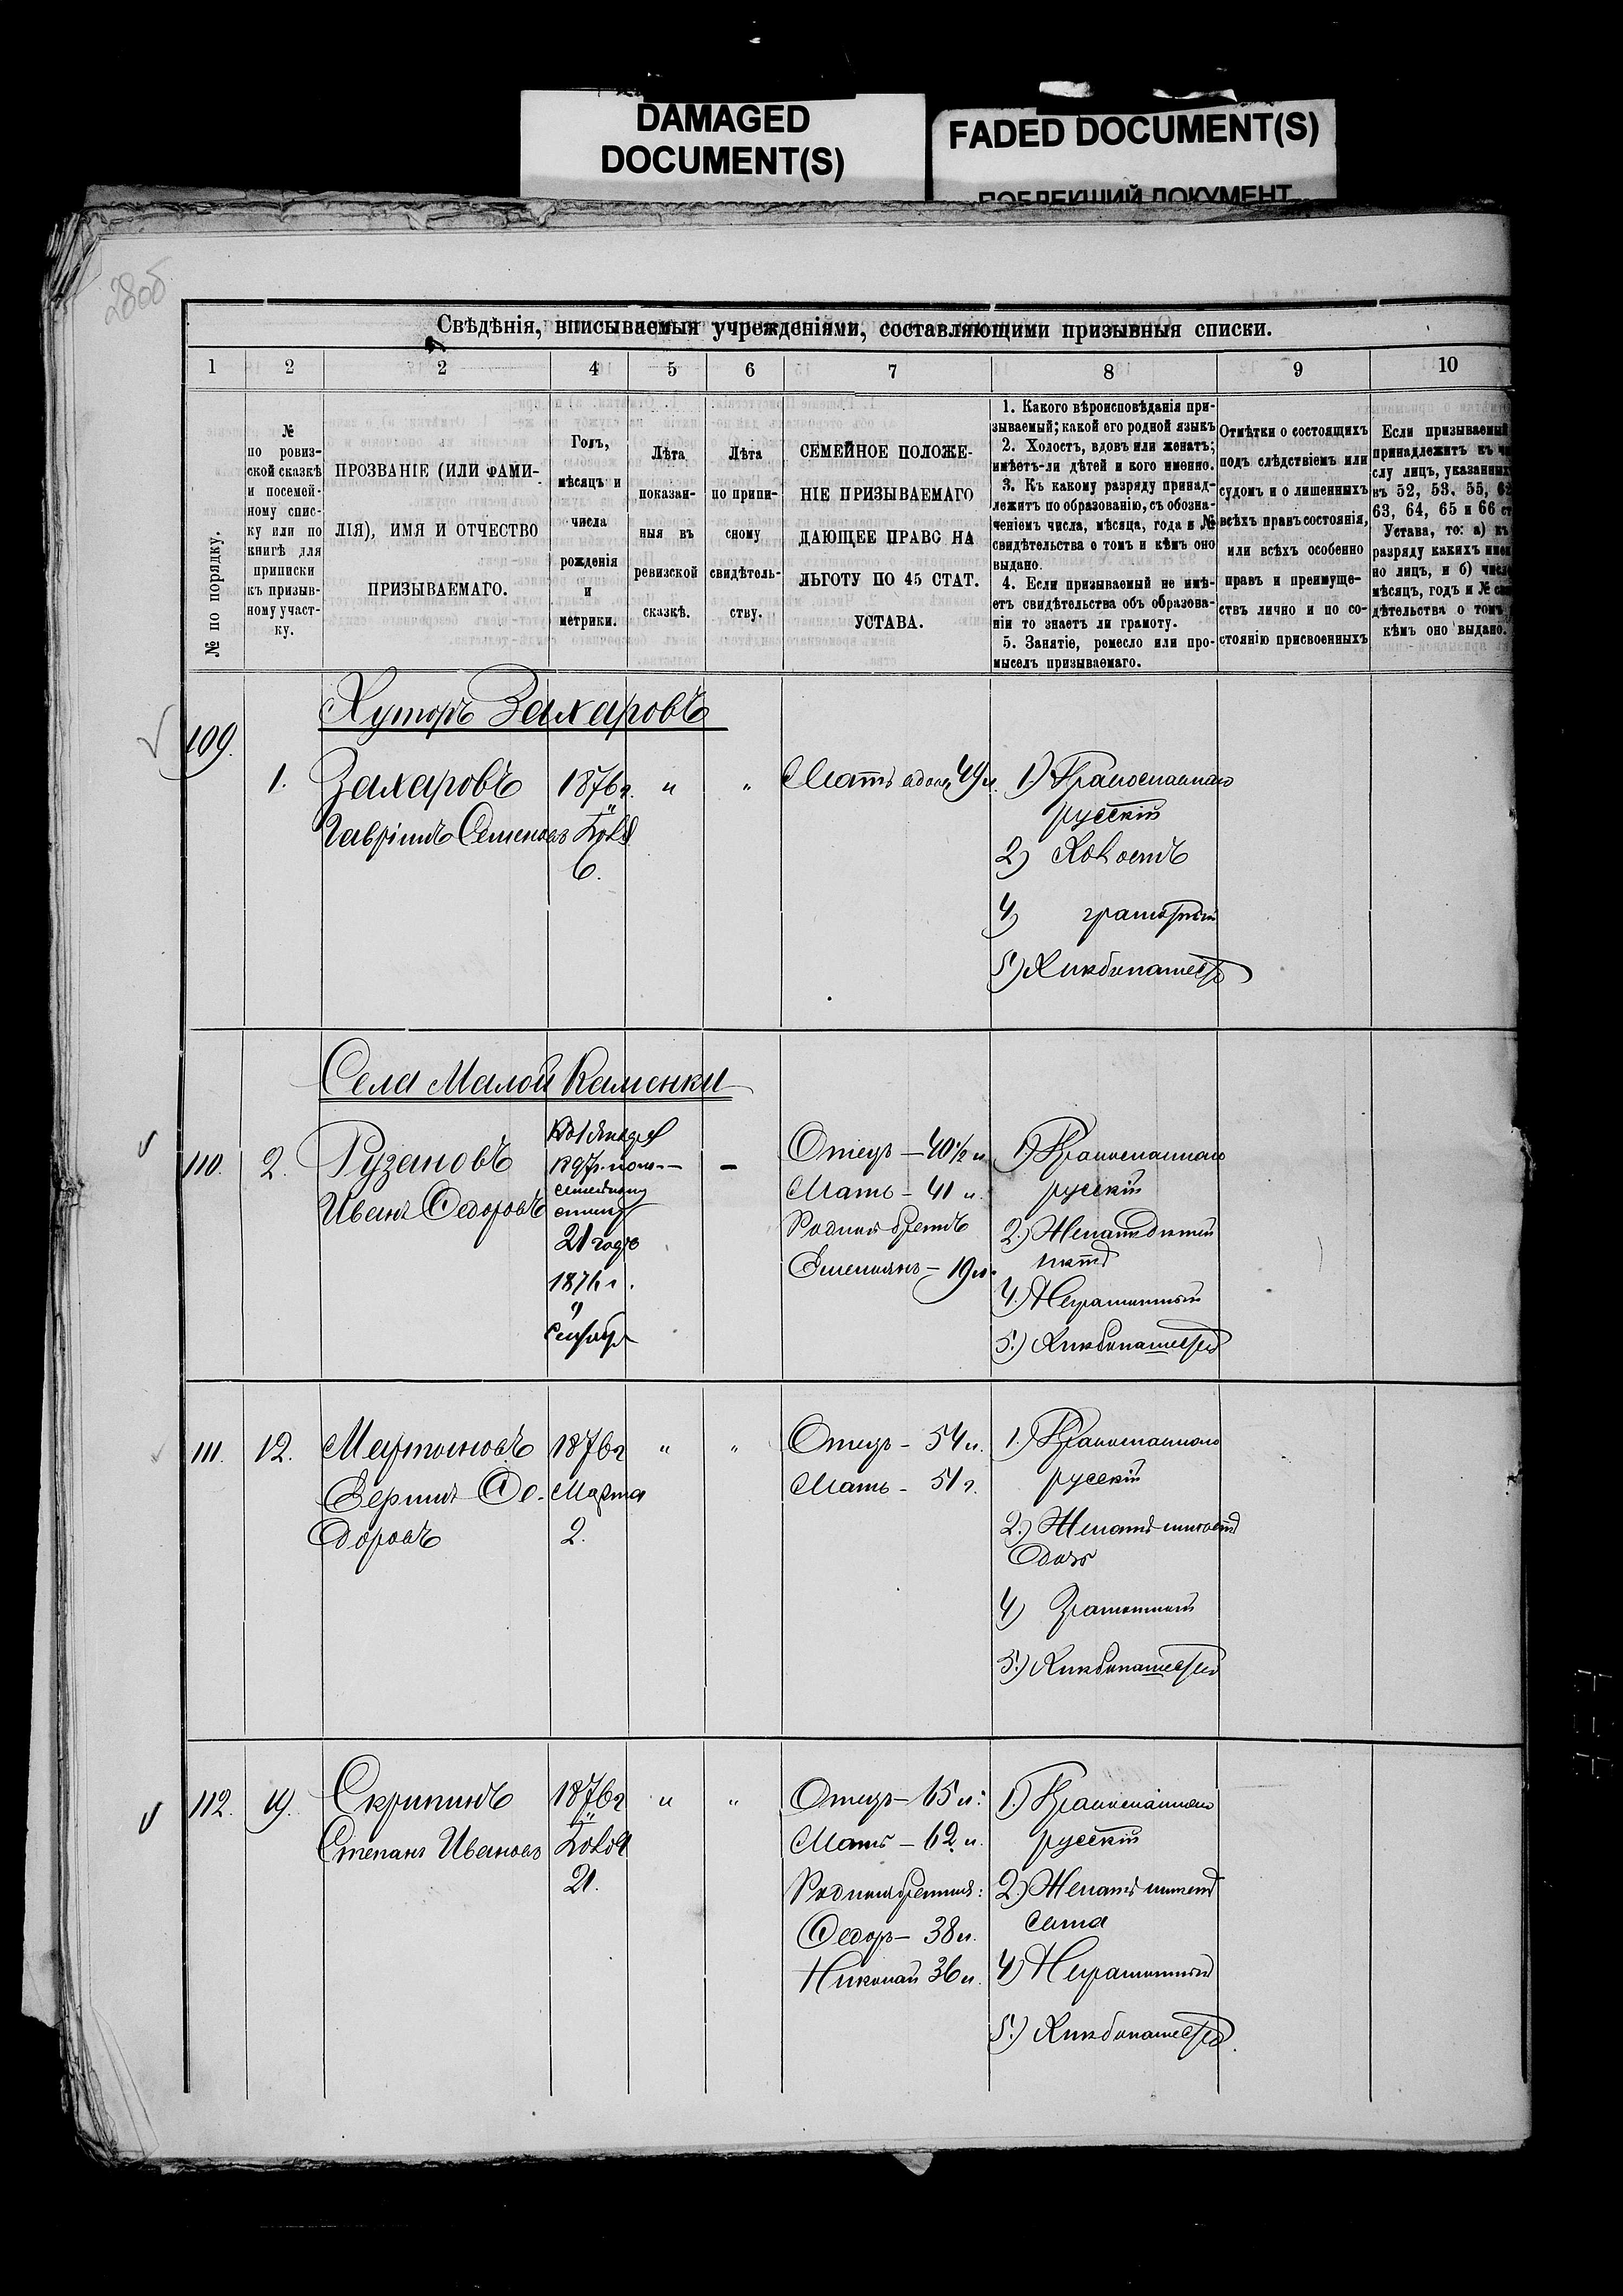 DAMAGED
DOCUMENT(S)
FADED DOCUMENT(S)
ПОБЛЕКШИЙ ДОКУМЕНТ
280б
Свѣдѣнія, вписываемыя учрежденіями, составляющими призывныя списки.
1 2 2 4 5 6 7 8 9 10
№ по порядку.
№
по ровиз-
ской сказкѣ
и посемей-
ному спис-
ку или по
книгѣ для
приписки
къ призыв-
ному участ-
ку.
ПРОЗВАНІЕ (ИЛИ ФАМИ-
ЛІЯ), ИМЯ И ОТЧЕСТВО
ПРИЗЫВАЕМАГО.
Годъ,
мѣсяцъ и
числа
рожденія
и
метрики.
Лѣта
показан-
ныя въ
ревизской
сказкѣ.
Лѣта
по припи-
сному
свидѣтель-
ству.
СЕМЕЙНОЕ ПОЛОЖЕ-
НІЕ ПРИЗЫВАЕМАГО
ДАЮЩЕЕ ПРАВО НА
ЛЬГОТУ ПО 45 СТАТ.
УСТАВА.
1. Какого вѣроисповѣданія при-
зываемый; какой его родной языкъ
2. Холостъ, вдовъ или женатъ;
имѣетъ-ли дѣтей и кого именно.
3. Къ какому разряду принад-
лежитъ по образованію, съ обозна-
ченіемъ числа, мѣсяца, года и №
свидѣтельства о томъ и кѣмъ оно
выдано.
4. Если призываемый не имѣ-
етъ свидѣтельства объ образова-
ніи то знаетъ ли грамоту.
5. Занятіе, ремесло или про-
мыселъ призываемаго.
Отмѣтки о состоящихъ
подъ слѣдствіемъ или
судомъ и о лишенныхъ
всѣхъ правъ состоянія,
или всѣхъ особенно
правъ и преимуще-
ствъ лично и по со-
стоянію присвоенныхъ
Если призываемый
принадлежитъ къ чи
слу лицъ, указанных
въ 52, 53. 55, 62
63, 64, 65 и 66 ст
Устава, то: а) къ
разряду какихъ имен
но лицъ, и б) число
мѣсяцъ, годъ и № сви
дѣтельства о томъ,
кѣмъ оно выдано.
Хуторъ Захаровъ
109.
1. Захаровъ 1876г. " " Мать вдова 49л. 1) Православнаго
Гавріилъ Семеновъ
6.
русскій
2) Холостъ
4) грамотный
5) Хлѣбопашество
Села Малой Каменки
110. 2. Рузановъ
Иванъ Федоровъ
21 годъ
1876 г.
—
Отецъ — 40½ л.
Мать — 41 л.
Родной братъ
Емельянъ — 19 л.
1) Православнаго
русскій
2.)
4.) Неграмотный
5.) Хлѣбопашество
111. 12. Мартыновъ 1876г " " Отецъ - 54 л. 1.) Православнаго
Марта
Мать - 51 г.
русскій
доровъ 2.
2.) Женатъ имѣетъ
4) Грамотный
5.) Хлѣбопашество
112. 19. Скрипинъ 1876г " " Отецъ — 65 л: 1.) Православнаго
Степанъ Ивановъ
Мать — 62 л.
русскій
21.
Родныя братья: 2.) Женатъ имѣетъ
Федоръ — 38 л.
сына
Николай 36 л. 4) Неграмотный
5.) Хлѣбопашество.